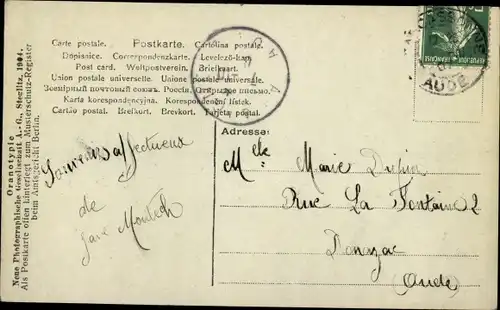 Carte postale. Postkarte. Cartolina postale.
Dopisnice. Correspondenzkarte. Levelező-lap.
Post card. Weltpostverein. Briefkaart.
Union postale universelle. Unione postale universale.
Всемірный почтовый союзъ. Россія. Открытое письмо.
Karta korespondencyjna. Korespondenční lístek.
Cartão postal. Brefkort. Brevkort. Tarjeta postal.
Oranotypie
Neue Photographische Gesellschaft A.-G., Steglitz, 1904.
Als Postkarte offen hinterlegt zum Musterschutz-Register
beim Amtsgericht Berlin.
Souvenirs affectueux
de
Adresse:
Melle Marie Dupin
Rue La Fontaine 2
(Aude)
AUDE